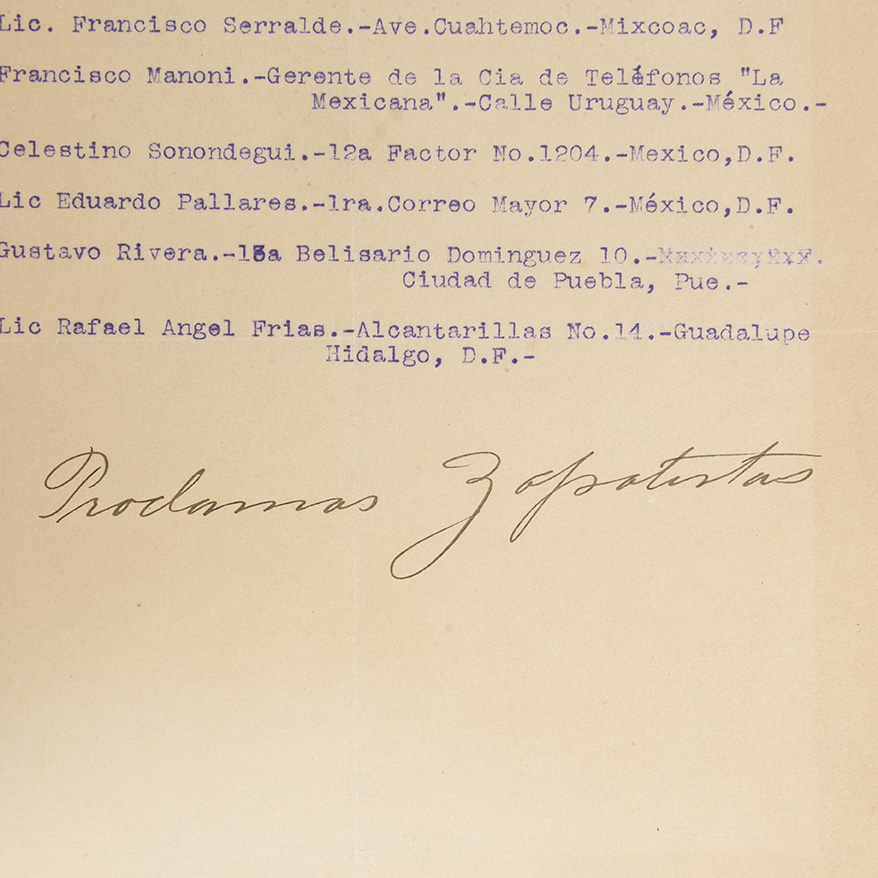 Lic. Francisco Serralde.-Ave.Cuahtemoc.-Mixcoac, D.F
Francisco Manoni.-Gerente de la Cia de Teléfonos "La
Mexicana".-Calle Uruguay.-México.-
Celestino Sonondegui.-12a Factor No.1204.-Mexico,D.F.
Lic Eduardo Pallares.-1ra.Correo Mayor 7.-México,D.F.
Gustavo Rivera.-13a Belisario Dominguez 10.-
Ciudad de Puebla, Pue.-
Lic Rafael Angel Frias.-Alcantarillas No.14.-Guadalupe
Hidalgo, D.F.-
Proclamas Zapatistas